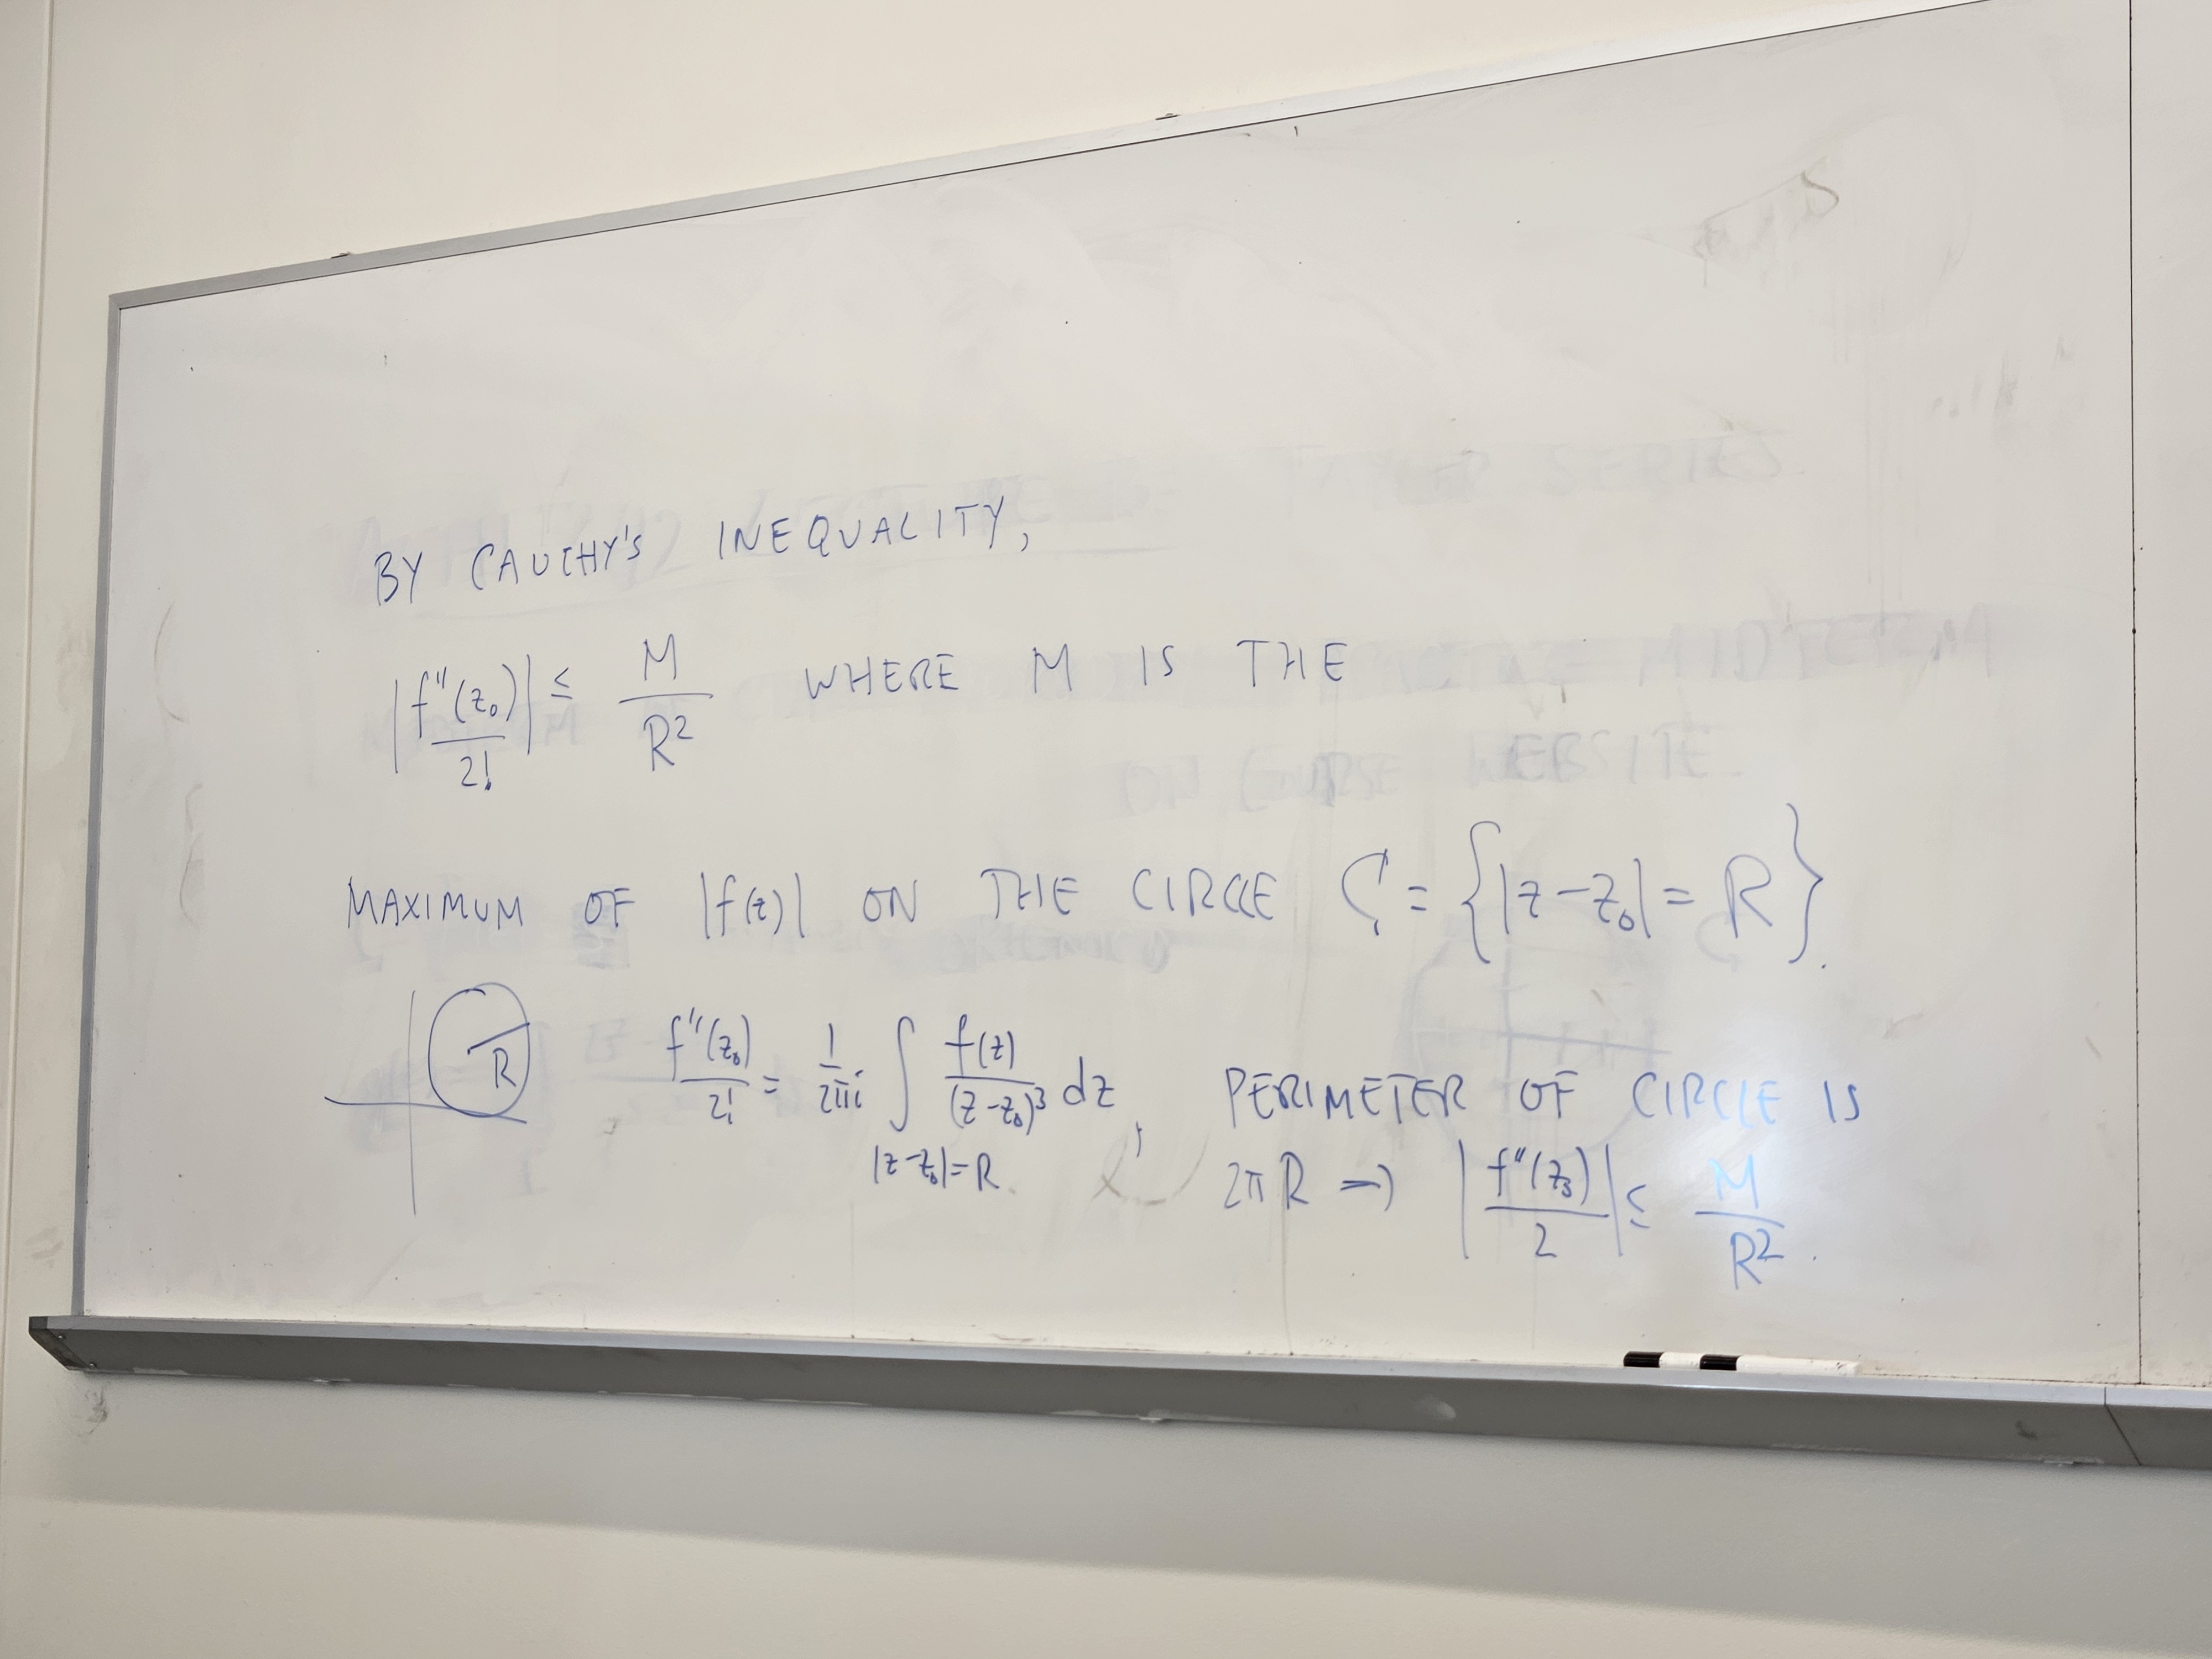 BY CAUCHY'S INEQUALITY,
|f''(z₀)/2!| ≤ M/R² WHERE M IS THE
MAXIMUM OF |f(z)| ON THE CIRCLE C = {|z-z₀| = R}.
R f''(z₀)/2! = 1/2πi ∫_{|z-z₀|=R} f(z)/(z-z₀)³ dz, PERIMETER OF CIRCLE IS
2πR ⇒ |f''(z₀)/2| ≤ M/R².
SERIES
MIDTERM
ON COURSE WEBSITE